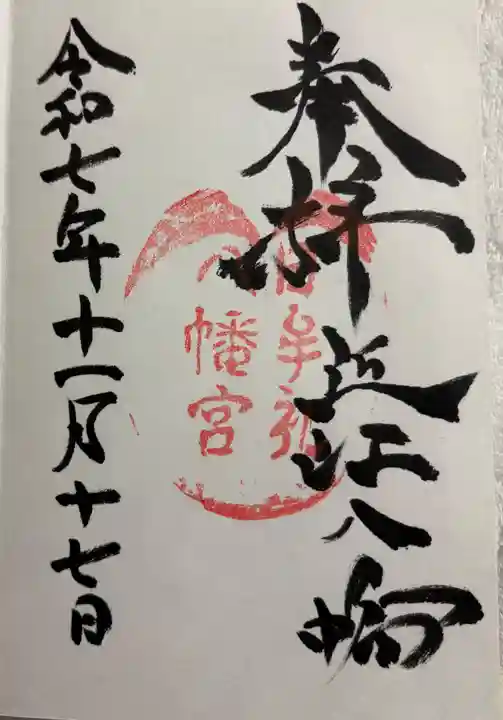 奉拝
近江八幡
日牟礼
八幡宮
令和七年十一月十七日